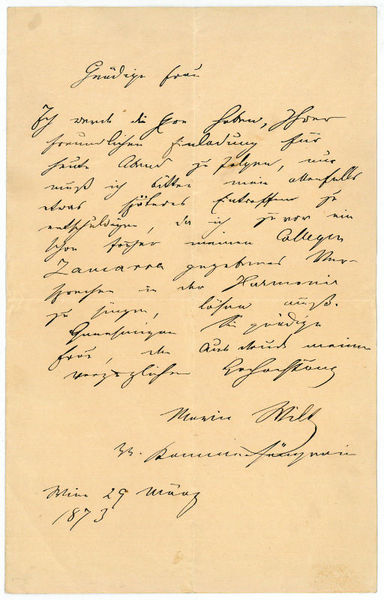 Gnädige Frau
Ich werde die Ehre haben, Ihrer
freundlichen Einladung für
heute Abend zu folgen, nur
muß ich bitten mein allenfalls
etwas späteres Eintreffen zu
entschuldigen, da ich zuvor ein
schon früher meinem Collegen
Zamarra gegebenes Ver-
sprechen in der Harmonie
zu singen, lösen muß.
Genehmigen Sie gnädige
Frau, den Ausdruck meiner
vorzüglichen Hochachtung
Marie Wilt
Kammersängerin
Wien 29 März
1873